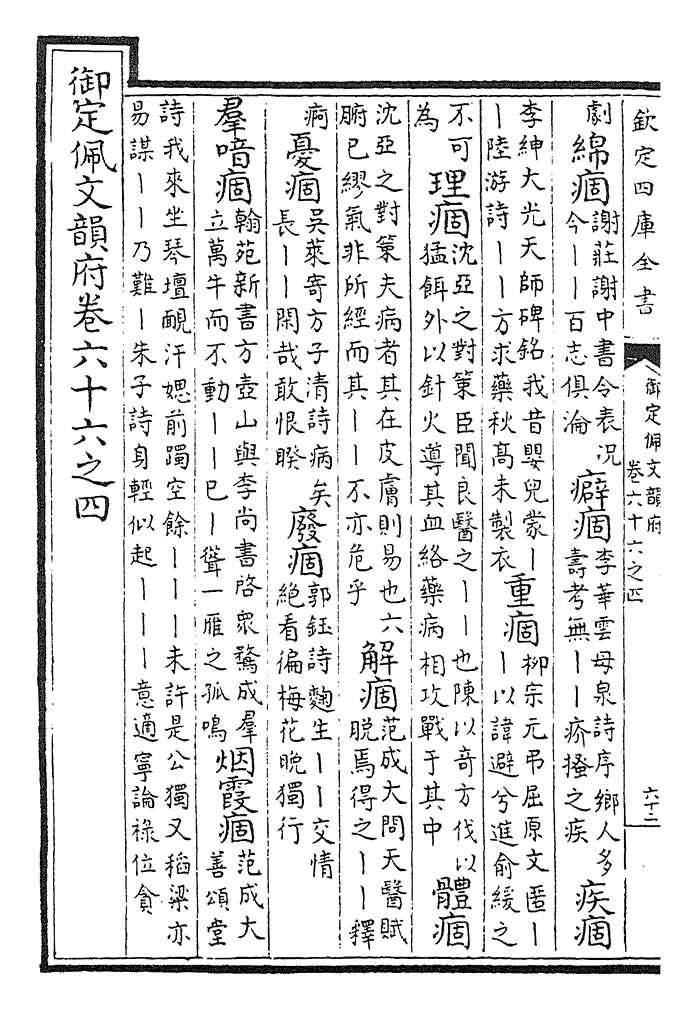 欽定四庫全書
御定佩文韻府
卷六十六之四
六十二
劇
綿痼
謝莊謝中書令表况
今丨丨百志俱淪
癖痼
李華雲母泉詩序鄉人多
壽考無丨丨疥搔之疾
疾痼
李紳大光天師碑銘我昔嬰兒蒙丨
丨陸游詩丨丨方求藥秋髙未製衣
重痼
柳宗元弔屈原文匿丨
丨以諱避兮進俞緩之
不可
為
理痼
沈亞之對策臣聞良醫之丨丨也陳以奇方伐以
猛餌外以針火導其血絡藥病相攻戰于其中
體痼
沈亞之對策夫病者其在皮膚則易也六
腑已繆氣非所經而其丨丨不亦危乎
解痼
范成大問天醫賦
脱焉得之丨丨釋
痾
憂痼
吳萊寄方子清詩病矣
長丨丨閑哉敢恨睽
廢痼
郭鈺詩麴生丨丨交情
絶看徧梅花晚獨行
羣喑痼
翰苑新書方壺山與李尚書啓衆驁成羣
立萬牛而不動丨丨巳丨聳一雁之孤鳴
烟霞痼
范成大
善頌堂
詩我來坐琴壇靦汗媤前躅空餘丨丨丨未許是公獨又稻粱亦
易謀丨丨乃難丨朱子詩身輕似起丨丨丨意適寧論祿位貪
御定佩文韻府卷六十六之四